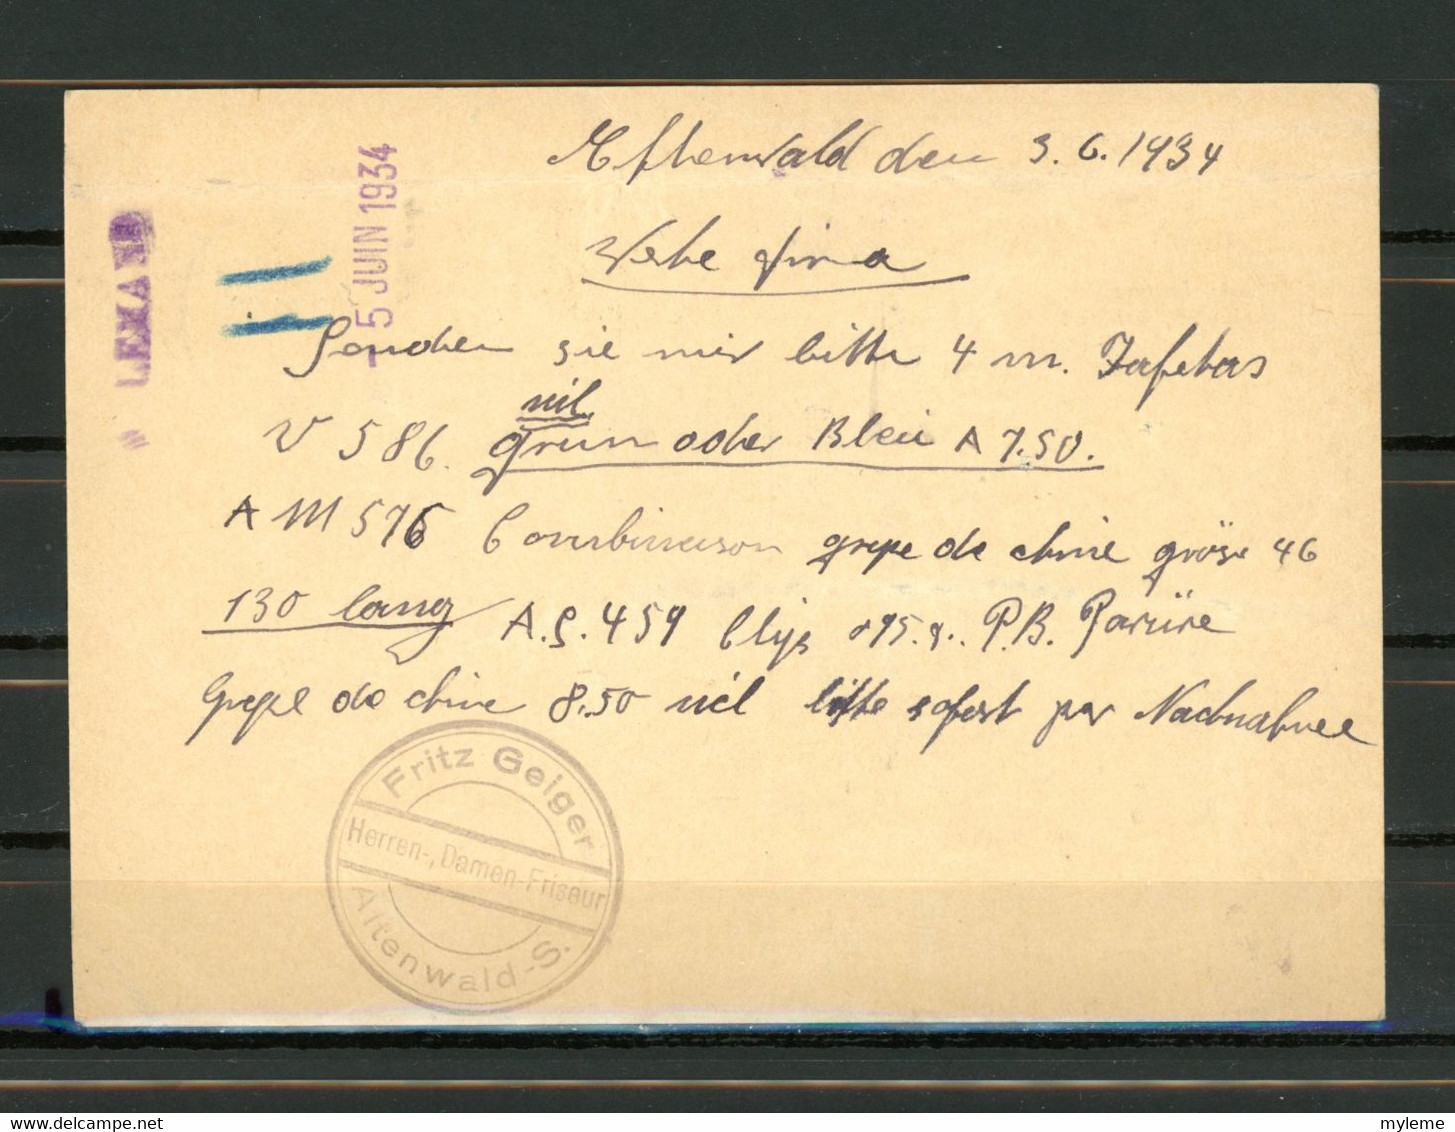 Altenwald den 3.6.1934
- 5 JUIN 1934
Werte Firma
Senden sie mir bitte 4 m. Tafetas
nil
V 586. Grün oder Bleu A 7.50.
A M 576 Combinaison grepe de chine gröse 46
130 lang A.S. 459 P.B. Parüre
Grepe de chine 8.50 nil bitte sofort per Nachnahmee
Fritz Geiger
Herren-, Damen-Friseur
Altenwald-S.
www.delcampe.net
myleme